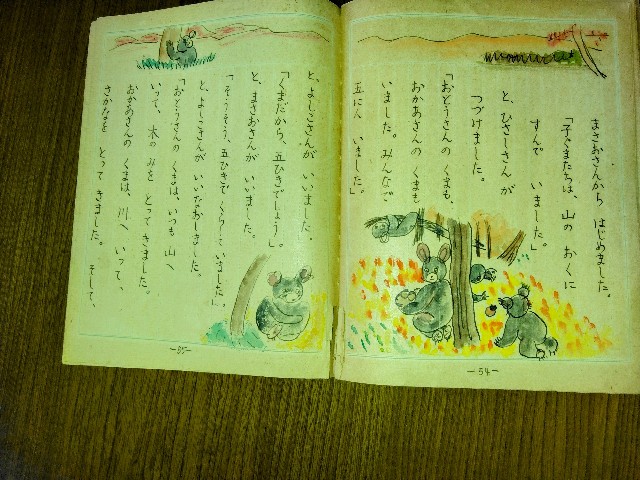 まさおさんから はじめました。
「子ぐまたちは、山の おくに
すんで いました」
と、ひさしさんが
つづけました。
「おとうさんの くまも、
おかあさんの くまも
いました。みんなで
五にん いました」
—54—
と、よし子さんが いいました。
「くまだから、五ひきでしょう。」
と、まさおさんが いいました。
「そうそう、五ひきで くらしていました」
と、よし子さんが いいなおしました。
「おとうさんの くまは、いつも 山へ
いって、木の みを とって きました。
おかあさんの くまは、川へ いって、
さかなを とって きました。 そして、
—55—